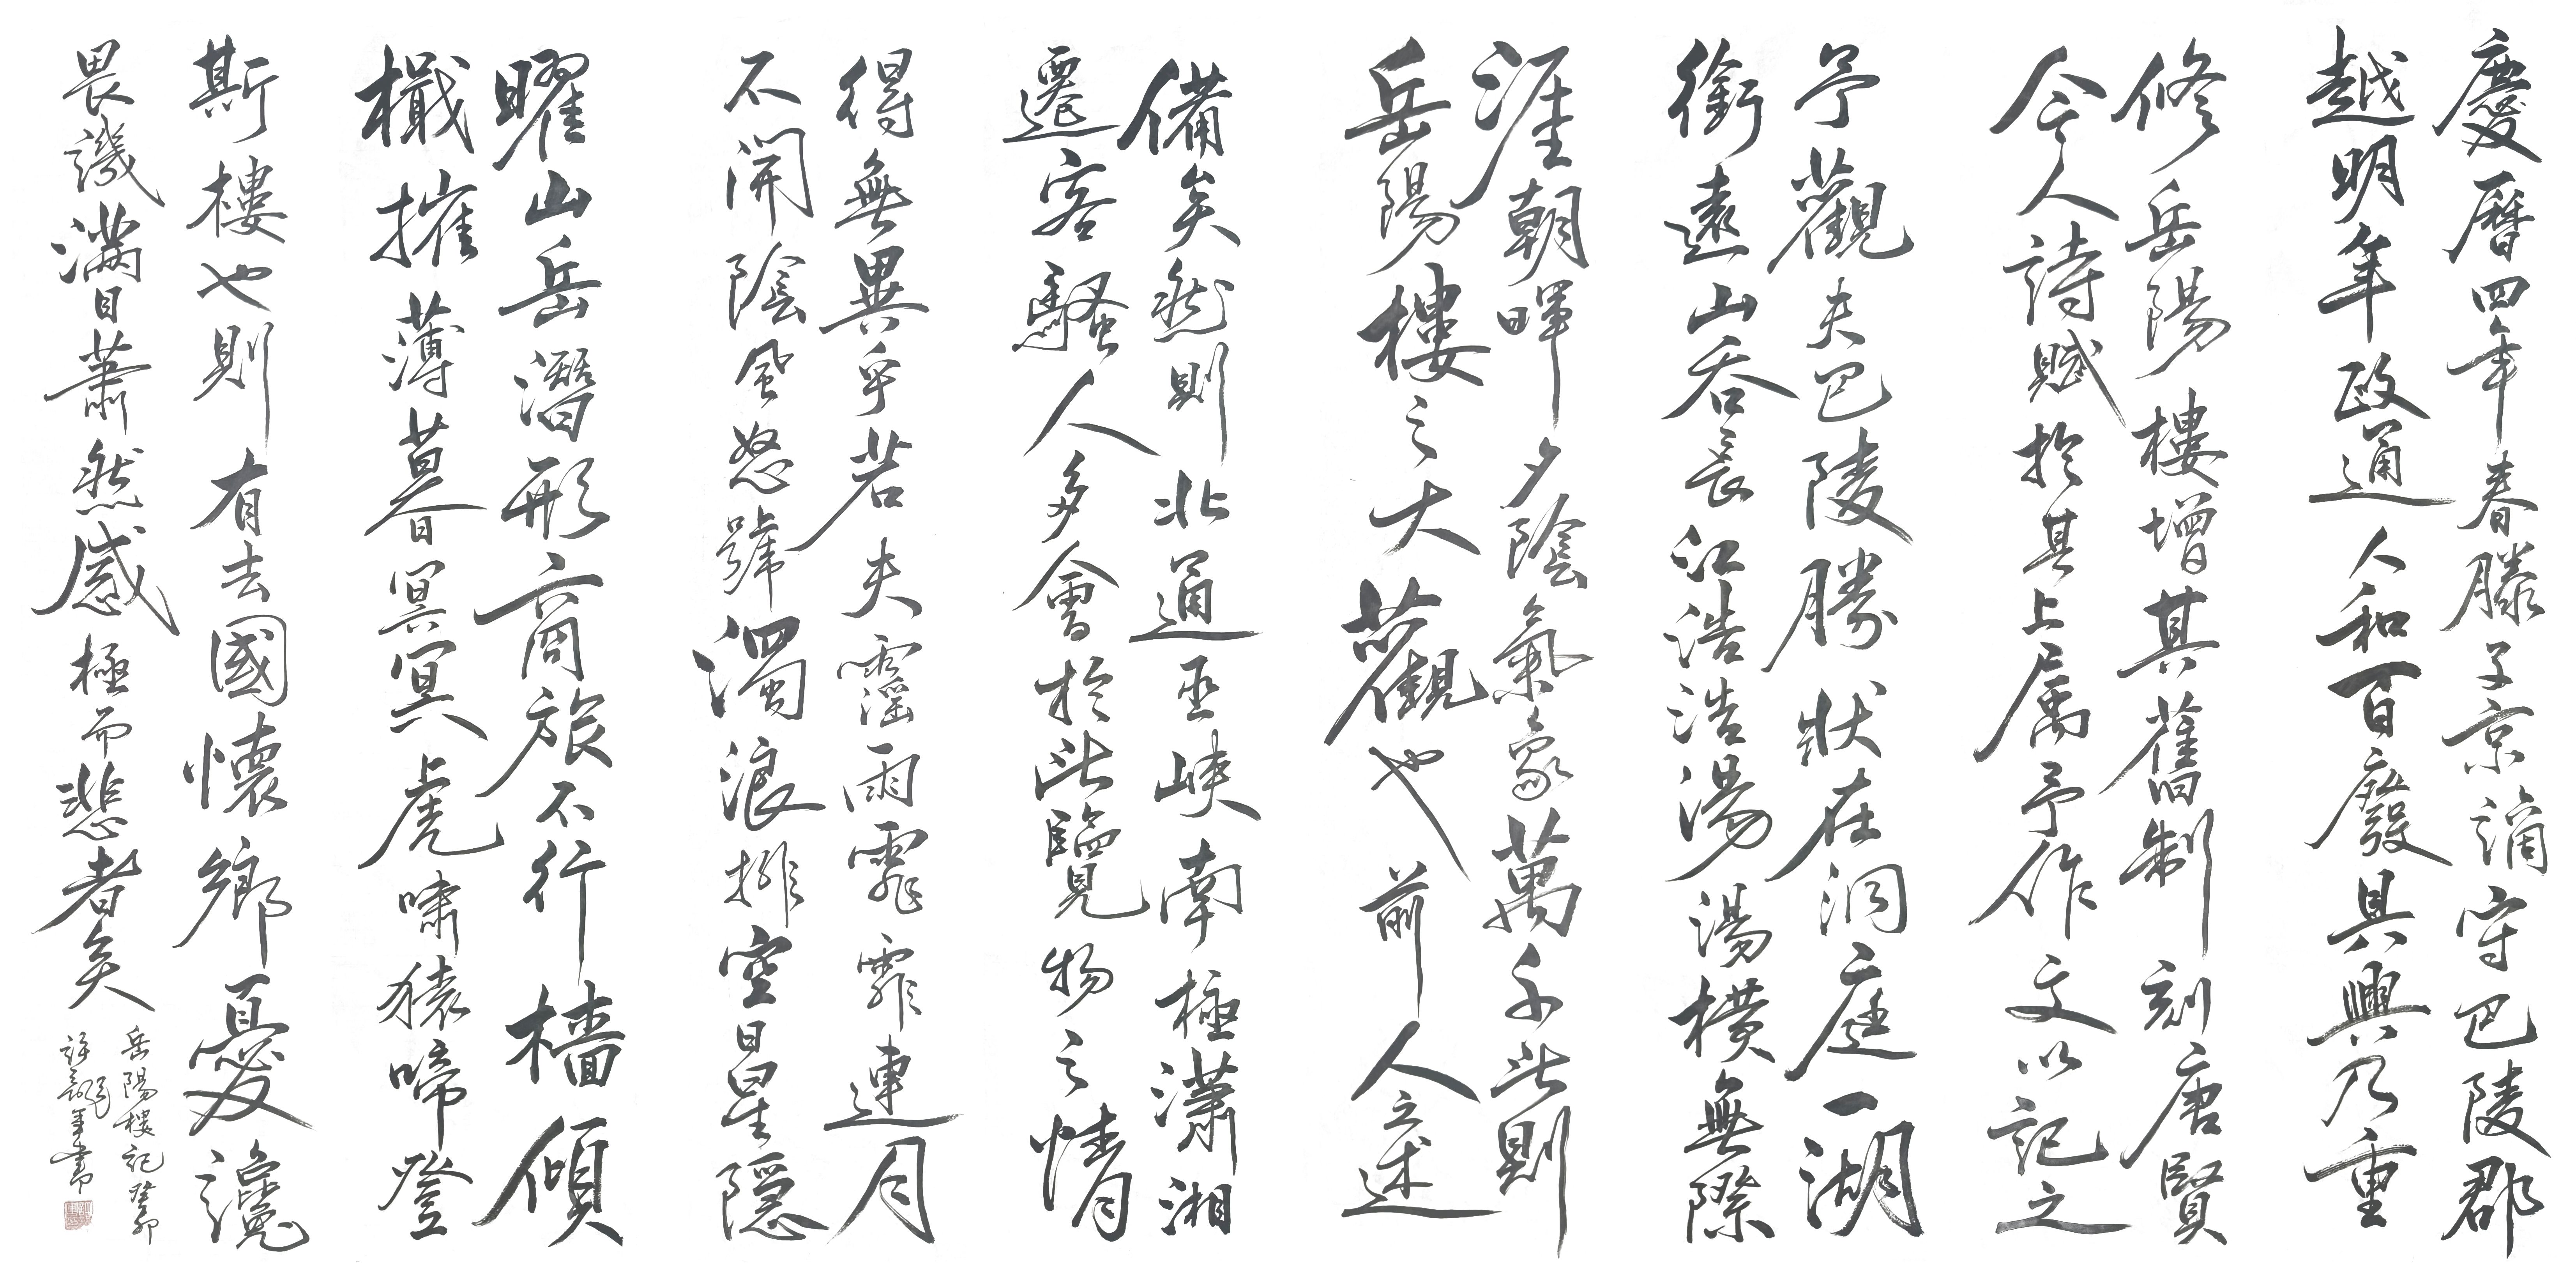 慶曆四年春滕子京謫守巴陵郡
越明年政通人和百廢具興乃重
修岳陽樓增其舊制刻唐賢
今人詩賦於其上属予作文以記之
予觀夫巴陵勝狀在洞庭一湖
銜遠山吞長江浩浩湯湯橫無際
涯朝暉夕陰氣象萬千此則
岳陽樓之大觀也前人之述
備矣然則北通巫峽南極瀟湘
遷客騷人多會於此覽物之情
得無異乎若夫霪雨霏霏連月
不開陰風怒號濁浪排空日星隱
曜山岳潛形商旅不行檣傾
檝摧薄暮冥冥虎嘯猿啼登
斯樓也則有去國懷鄉憂讒
畏譏滿目蕭然感極而悲者矣
岳陽樓記癸卯
許年書